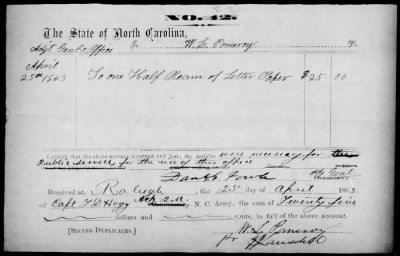 NO. 42.
The State of North Carolina,
Adjt Genls Office To W. L. Pomeroy Dr.
April
25th 1863 To one Half Ream of Letter Paper $25 00
I certify that the above account is correct and just, the articles were necessary for the
Public service for the use of this office
Danl G. Fowle
Adj Genl
Received at Raleigh the 25th day of April 1863,
of Capt T D Hogg N. C. Army, the sum of Twenty five
dollars and cents, in full of the above account.
[SIGNED DUPLICATES.] W. L. Pomeroy
pr